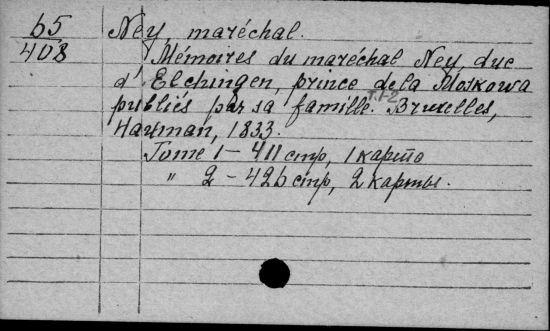 65 Ney, maréchal.
408 Mémoires du maréchal Ney, duc
d'Elchingen, prince de la Moskowa
publiés par sa famille. T.1-2 Bruxelles,
Hauman, 1833.
Tome 1 - 411 стр, 1 карта
" 2 - 426 стр, 2 карты.